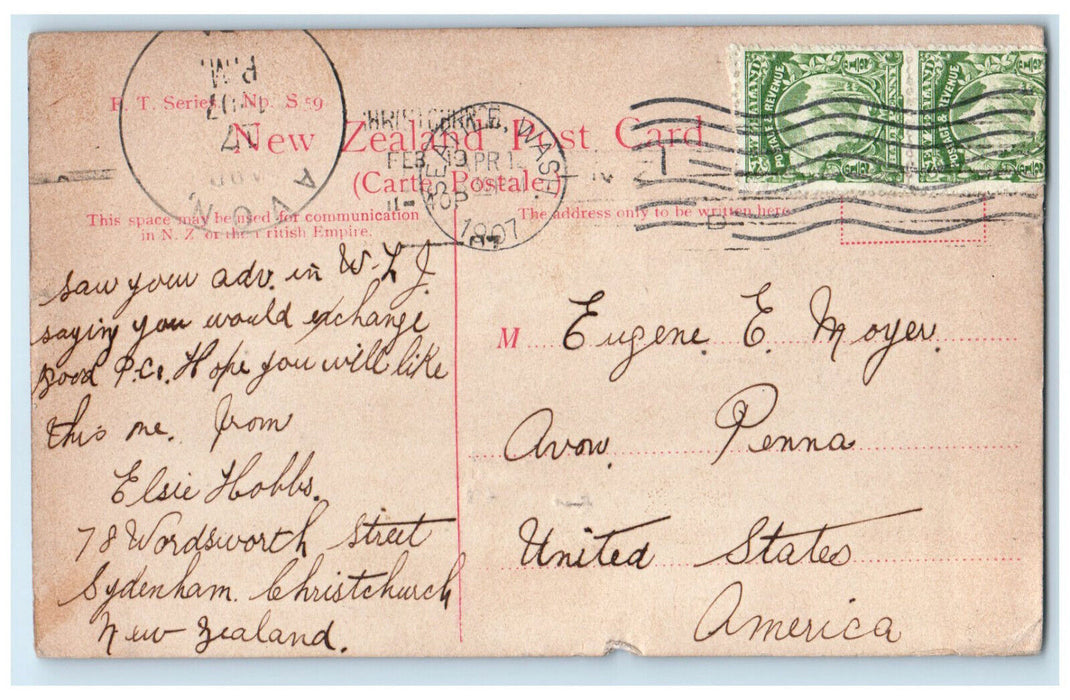 F. T. Series. No. S 59
New Zealand Post Card
(Carte Postale)
This space may be used for communication
in N. Z. or the British Empire.
The address only to be written here
P.M.
AVON
CHRISTCHURCH
FEB 19
SEATTLE, WASH.
APR
1907
POSTAGE & REVENUE
POSTAGE & REVENUE
Saw your adv. in W. L J.
saying you would exchange
good P.Cs. Hope you will like
this one. from
Elsie Hobbs.
78 Wordsworth Street
Sydenham. Christchurch
New Zealand.
M Eugene. E. Moyer.
Avon. Penna
United States
America